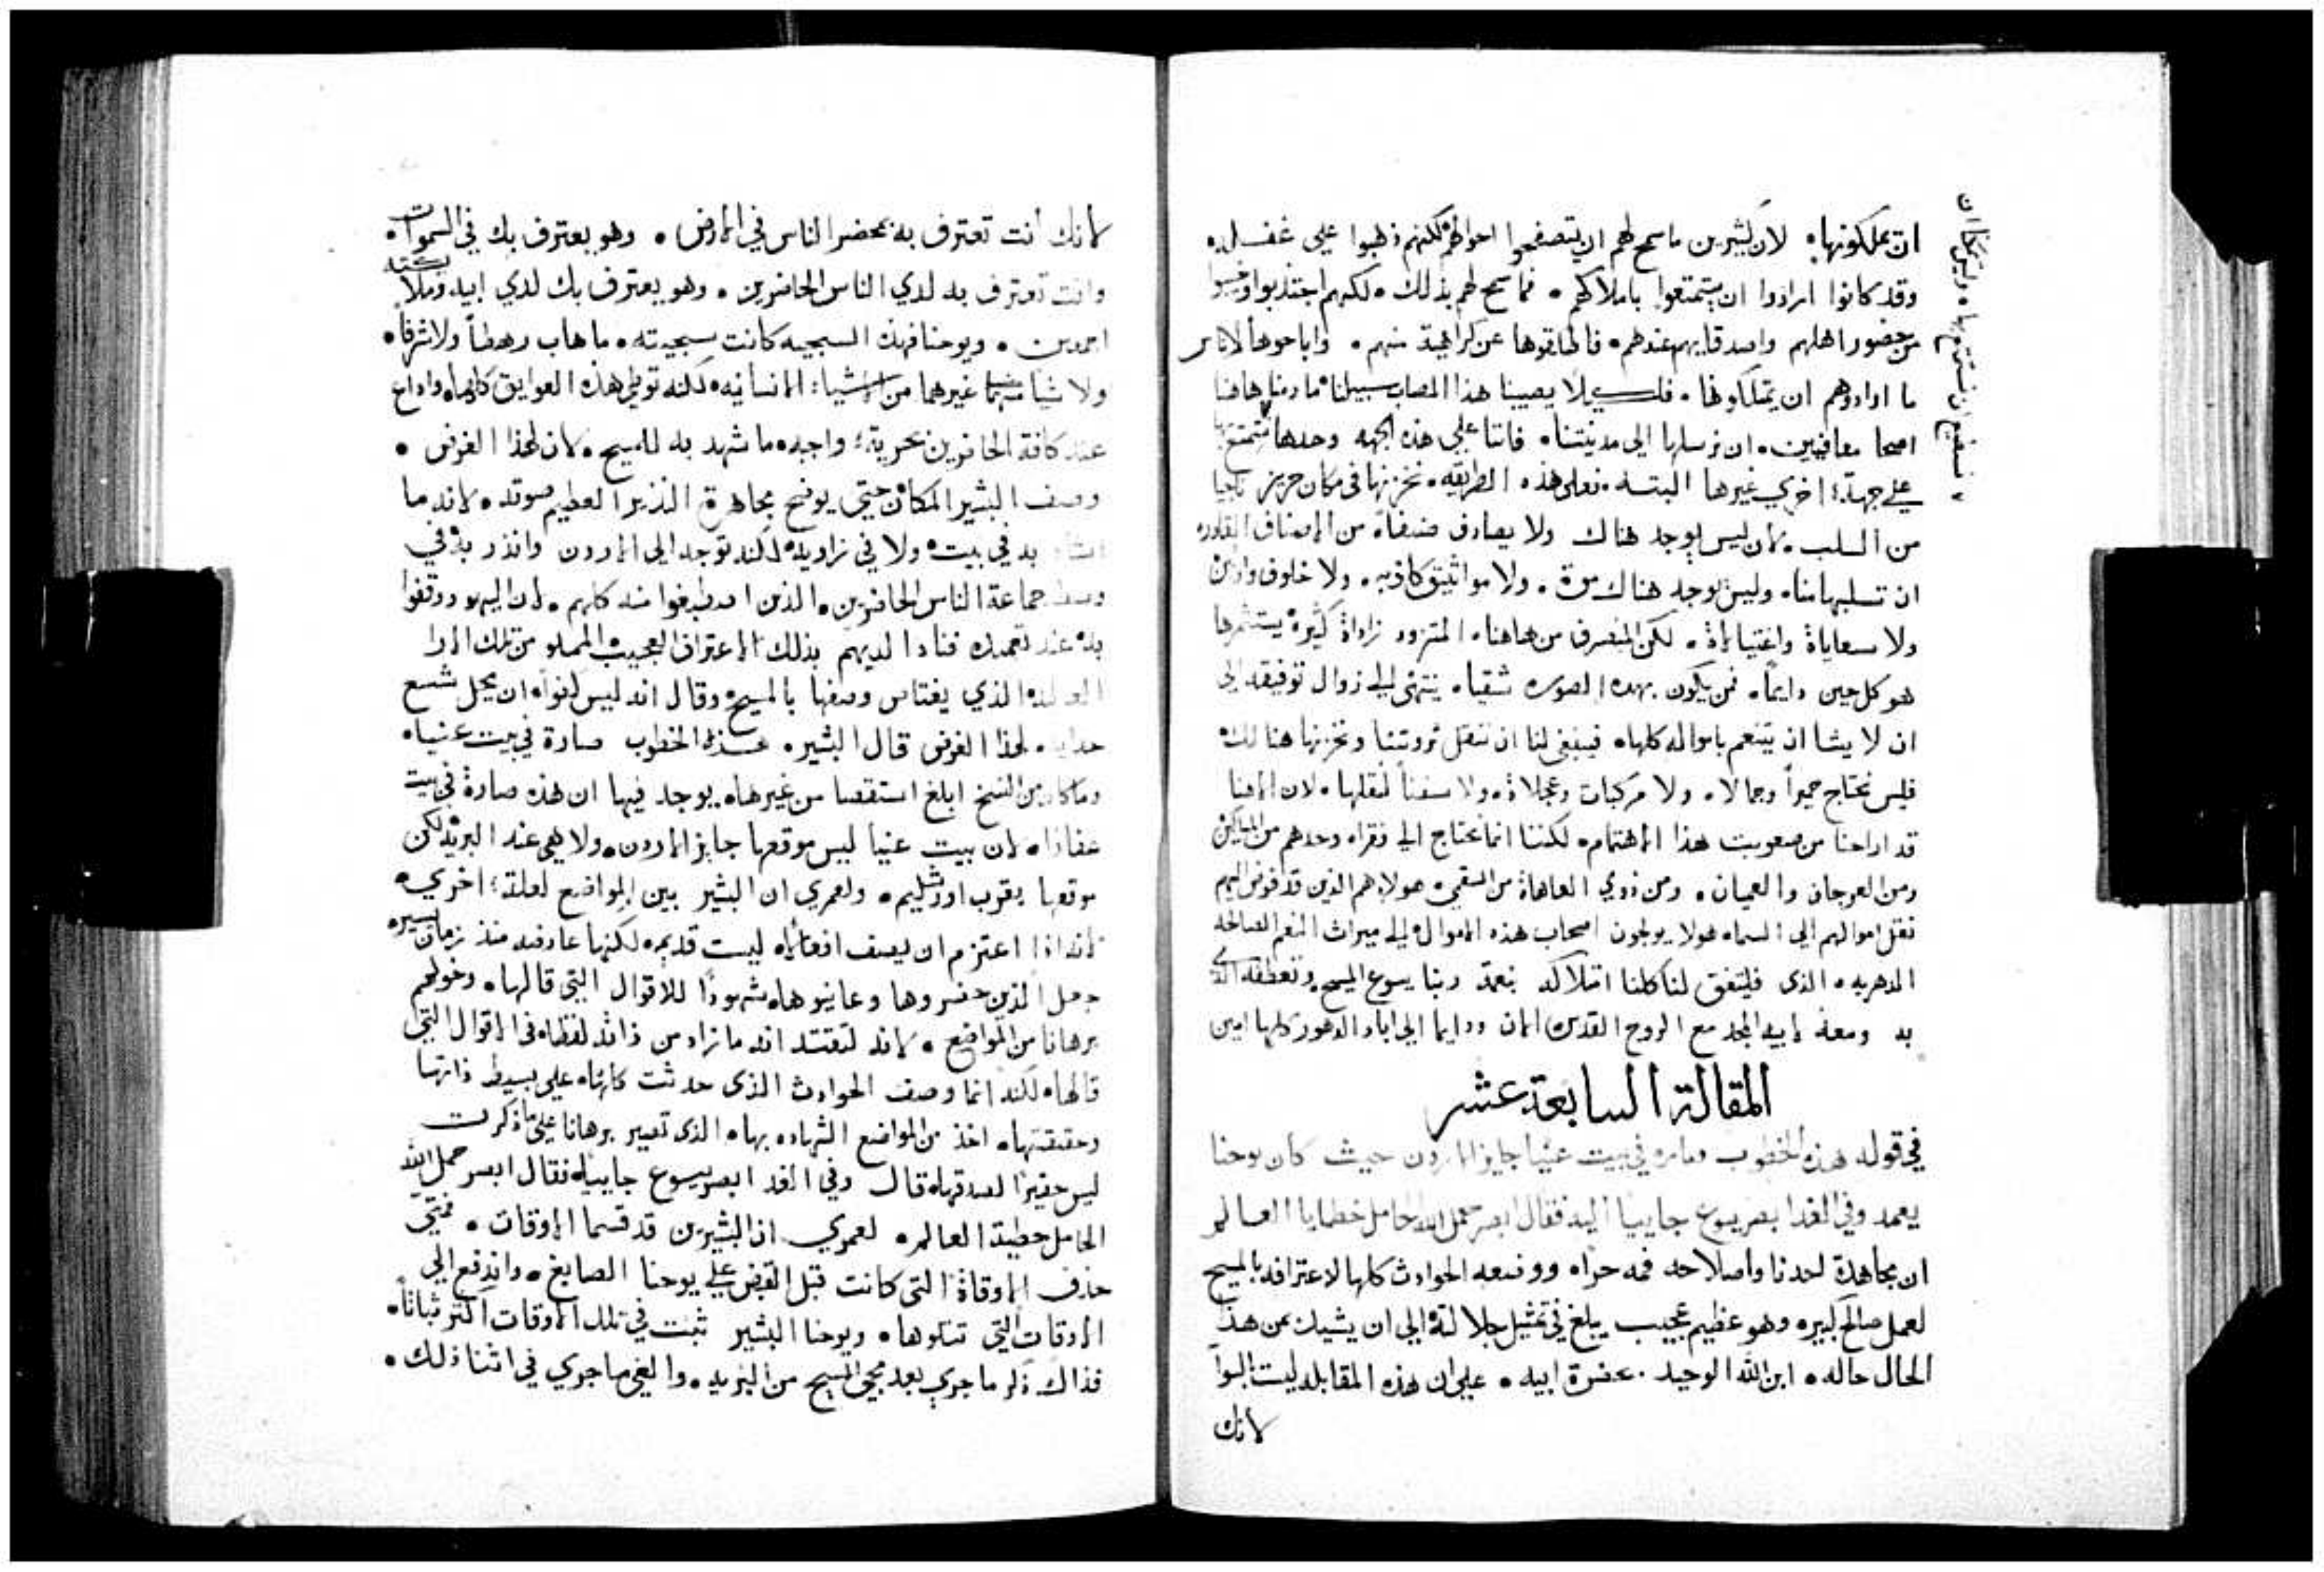 ان تملكونها. لان كثيرين ما سمح لهم ان يتصفحوا احوالهم لكنهم ذهبوا على غفله.
وقد كانوا ارادوا ان يتمتعوا باملاكهم. فما سمح لهم بذلك. لكنهم اجتذبوا
من حضور اهلهم واصدقايهم عندهم. فاطلقوها عن كراهية منهم. واباحوها لاناس
ما ارادوهم ان يتملكونها. فلكي لا يصيبنا هذا المصاب سبيلنا ما دمنا هاهنا
اصحا معافيين. ان نرسلها الى مدينتنا. فاننا على هذه الجهه وحدها نتمتع بها
على جهة اخري غيرها البتــه. فعلى هذه الطريقه. نخزنها في مكان حريز ناجيا
من السلب. لان ليس يوجد هناك ولا يصادف صنفاً من الاصناف القادره
ان تسلبها منا. وليس يوجد هناك موت. ولا مواثيق كاذبه. ولا خلوف وارثين
ولا سعاياة واغتيالاة. لكن المنصرف من هاهنا. المتزود زاداة كثيرة يستثمرها
هو كل حين دايماً. فمن يكون بهده الصوره شقيا. ينتهى الى زوال توفيقه الى
ان لا يشا ان يتنعم باموالــه كلها. فينبغى لنا ان ننقل ثروتنا ونخزنها هنالك.
فليس نحتاج حميراً وجمالا. ولا مركبات وعجلاة. ولا سفناً لنقلها. لان الاهنا
قد اراحنا من صعوبت هذا الاهتمام. لكننا انما نحتاج الى فقرا. وحدهم من المساكين
ومن العرجان والعميان. ومن ذوي العاهاة من السقمى. هولا. هم الذين قد فوض اليهم
نقل اموالهم الى السما. هولا يولجون اصحاب هذه الاموال الى ميراث النعم الصالحة
الدهريه. الذى فليتفق لنا كلنا امتلاكه بنعمة ربنا يسوع المسيح. وتعطفه الذي
به ومعه لابيه المجد مع الروح القدس الان ودايما الى اباد الدهور كلها امين
المقالة السابعة عشر
في قوله هذه الخطوب صاره في بيت عنيا جايز الاردن حيث كان يوحنا
يعمد وفي الغد ابصر يسوع جاييا اليه فقال ابصر حمل الله الحامل خطايا العالم
ان مجاهدة لحدنا واصلاحه فمه حراه ووضعه الحوادث كلها لاعترافه بالمسيح
لعمل صالح كبير. وهو عظيم عجيب يبلغ في تمثيل جلالته الى ان يشيك من هذا
الحال حاله. ابن الله الوحيد. بحضرة ابيه. على ان هذه المقابله ليست بالسوا
لانك
لانك انت تعترف به بمحضر الناس في الارض. وهو يعترف بك في السموات.
وانت تعترف به لدي الناس الحاضرين. وهو يعترف بك لدي ابيه وملايكته
اجمعين. ويوحنا فهذه السجيه كانت سجيته. ما هاب رهطاً ولا شرفاً.
ولا شيا غيرهما من الاشيا الانسانيه. لكنه توطى هذه العوايق كلها. واذاع
عند كافة الحاضرين بحرية واجبه ما شهد به للمسيح. لان لهذا الغرض.
وصف البشير المكان حتى يوضح مجاهرة النذير العظيم صوته. لانه ما
به في بيت. ولا في زاويه. لكنه توجه الى الاردن وانذر به في
وسط جماعة الناس الحاضرين. الذين اصطبغوا منه كلهم. لان اليهود وقفوا
به عند تعميده فنادا لديهم بذلك الاعتراف العجيب المملو من تلك الارا
الذي يغتاس وصفها بالمسيح. وقال انه ليس كفواً. ان يحل شسع
حذايه. لهذا الغرض قال البشير. هذه الخطوب صارة في بيت عنيا.
وما كان من النسخ ابلغ استقصا من غيرها. يوجد فيها ان هذه صارة في بيت
عفارا. لان بيت عنيا ليس موقعها جايز الاردن. ولا هي عند البرية. لكن
موقعها بقرب اورشليم. ولعمري ان البشير بين المواضع لعلة اخري.
لانه اذا اعتزم ان يصف افعالا. ليست قديمه. لكنها عارضه منذ زمان يسيره
جعل الذين حضروها وعاينوها. شهوداً للاقوال التي قالها. وخولهم
برهانا من المواضع. لانه لثقته انه ما زاد من ذاته لفظا. في الاقوال التي
قالها. لكنه انما وصف الحوادث الذى حدثت كلها. على بسيط ذاتها
وحقيقتها. اخذ من المواضع الشهاده بها. الذى تصير برهانا على ما ذكرت
ليس حقيراً لصدقها. قال وفي الغد ابصر يسوع جاييا. فقال ابصر حمل الله
الحامل خطية العالم. لعمري ان البشيرين قد قسما الاوقات. فمتى
حذف الاوقاة التى كانت قبل القبض على يوحنا الصابغ. واندفع الى
الاوقات التي تتلوها. ويوحنا البشير ثبت في تلك الاوقات اكثر ثباتاً.
فذاك ذكر ما جري بعد مجي المسيح من البريه. والغى ما جري في اثنا ذلك.